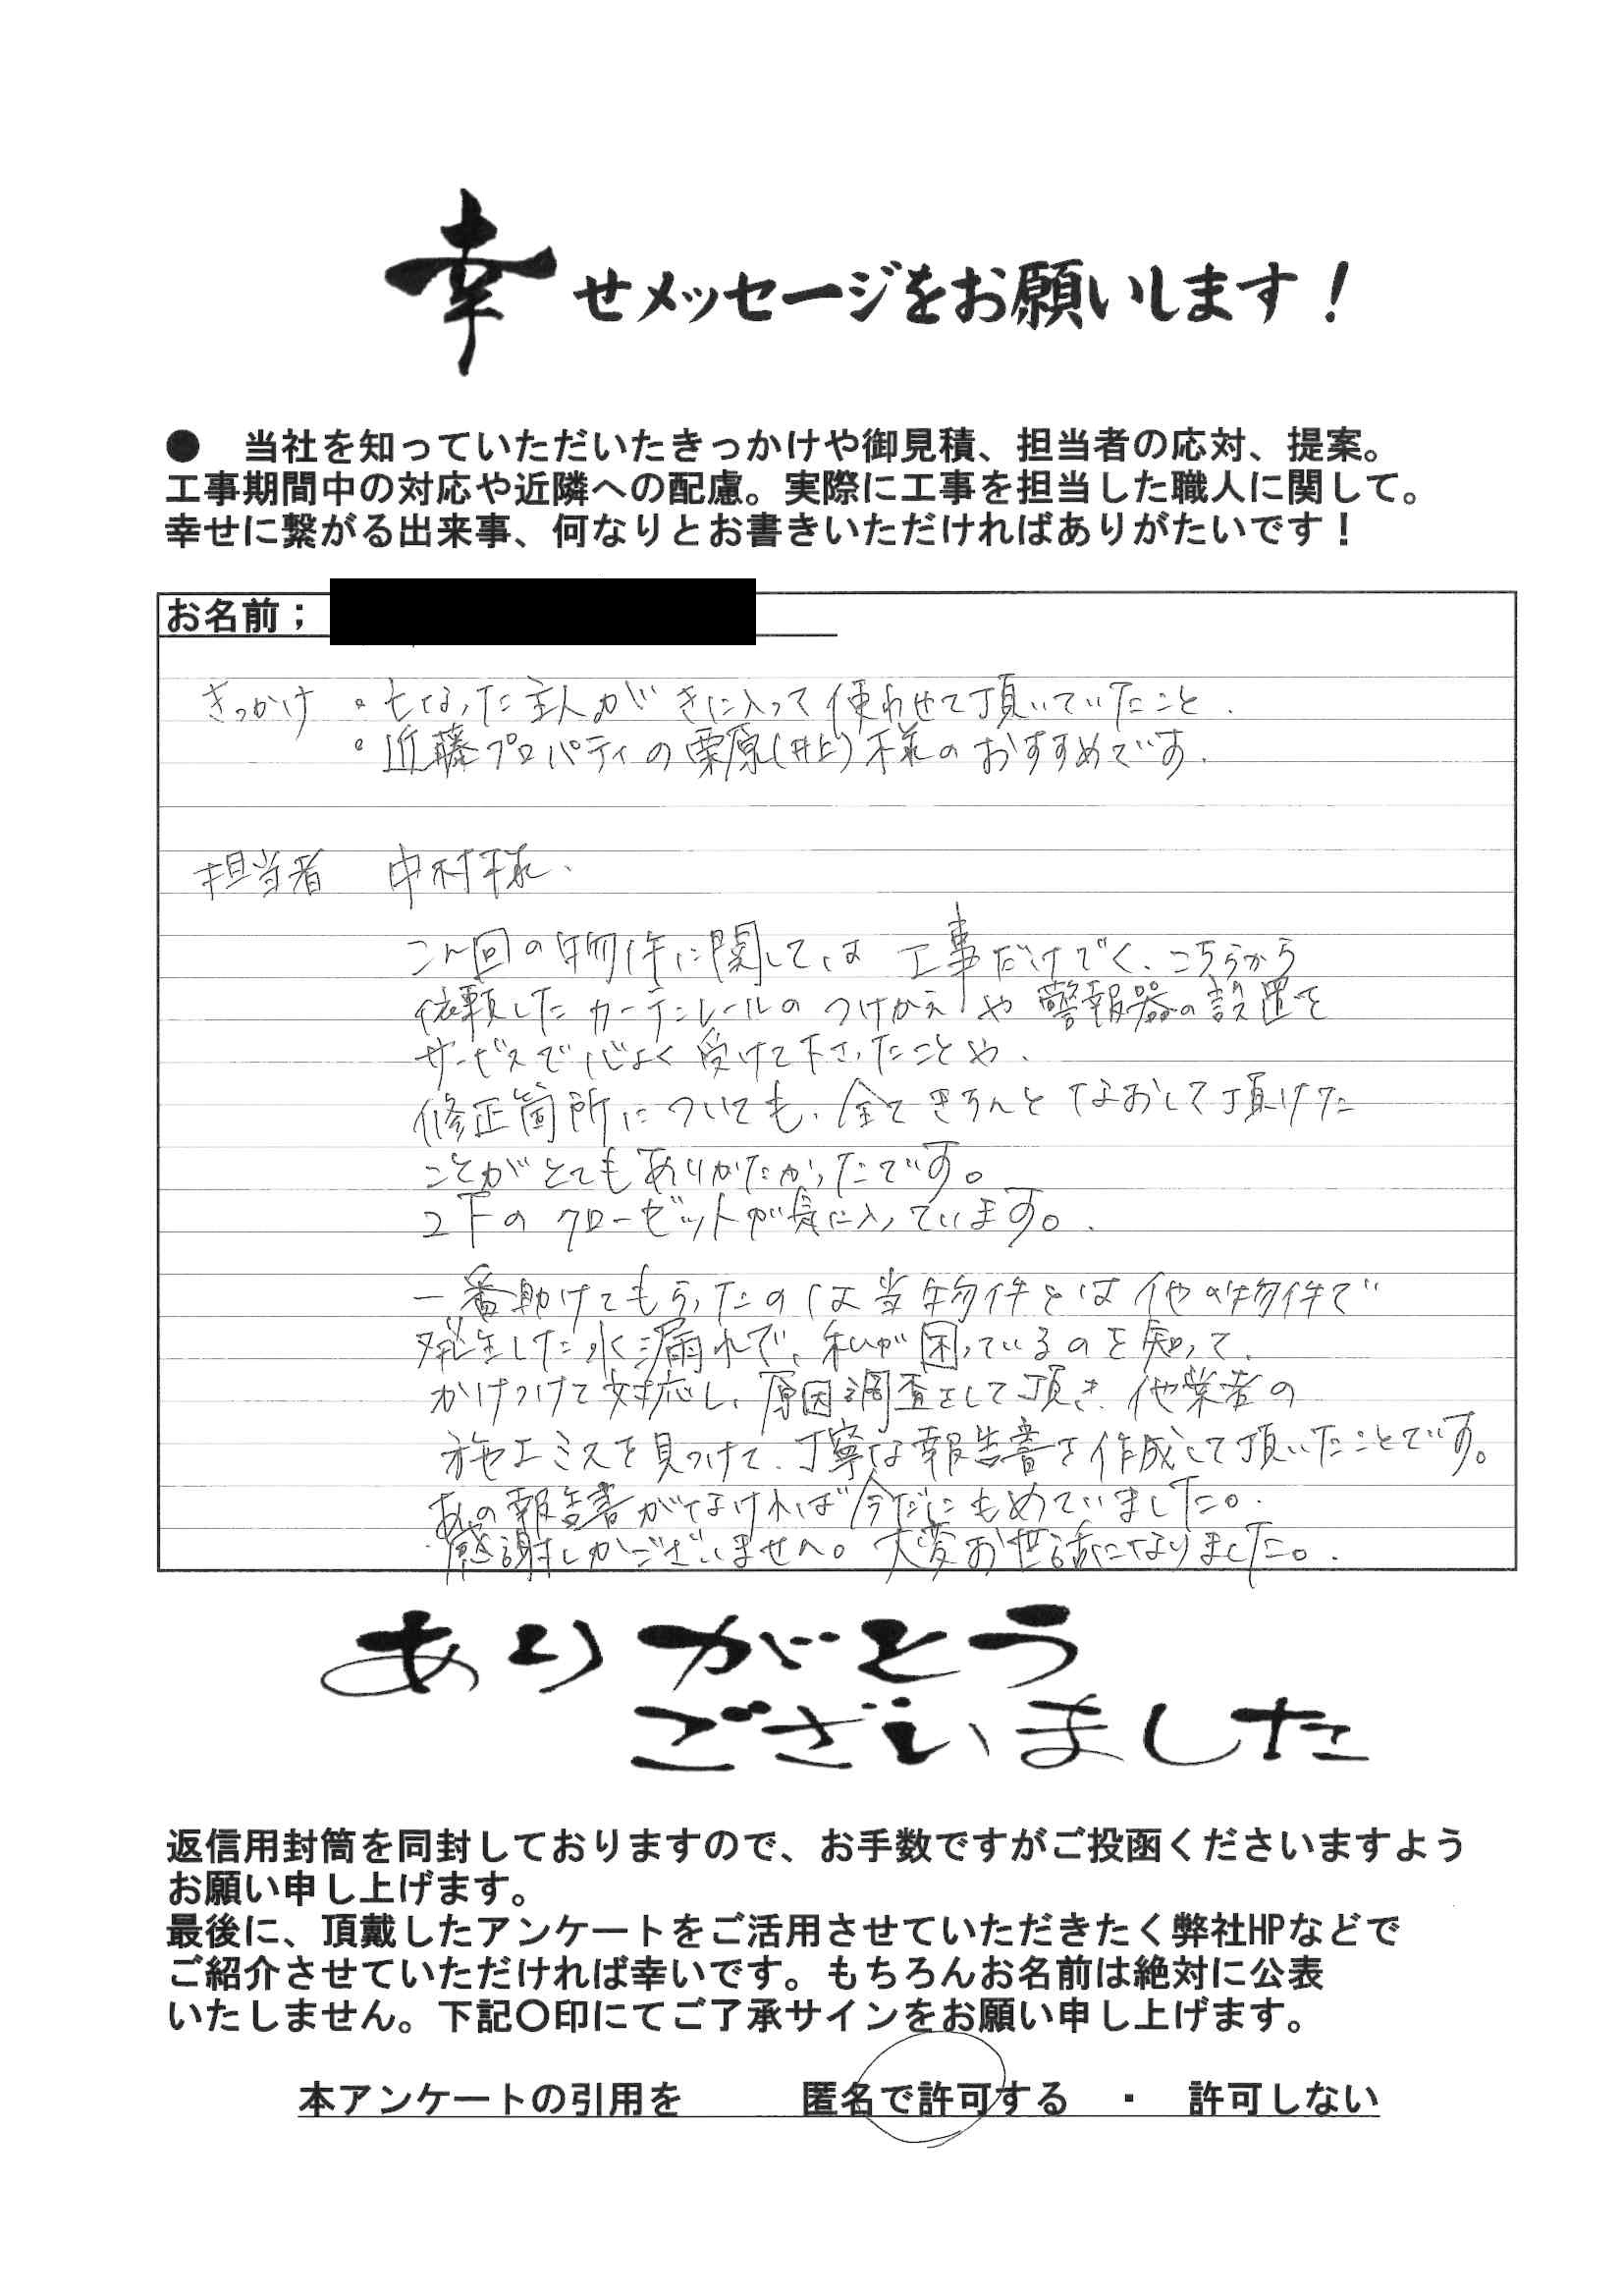 幸せメッセージをお願いします！
● 当社を知っていただいたきっかけや御見積、担当者の応対、提案。
工事期間中の対応や近隣への配慮。実際に工事を担当した職人に関して。
幸せに繋がる出来事、何なりとお書きいただければありがたいです！
お名前；
きっかけ 。亡なった主人がきに入って使わせて頂いていたこと.
。近藤プロパティの栗原(井上)様のおすすめです.
担当者 中村様.
こん回の物件に関しては 工事だけでく、こちらから
依頼したカーテンレールのつけかえや警報器の設置を
サービスで心よく受けて下さったことや、
修正箇所についても、全てきちんとなおして頂けた
ことがとてもありがたかったです。
2下のクローゼットが気に入っています。.
一番助けてもらったのは当物件とは他の物件で
発生した水漏れで、私が困っているのを知って、
かけつけて対応し、原因調査をして頂き、他業者の
施工ミスを見つけて、丁寧な報告書を作成して頂いたことです。
あの報告書がなければ今だにもめていました。.
感謝しかございません。大変お世話になりました。.
ありがとう
ございました
返信用封筒を同封しておりますので、お手数ですがご投函くださいますよう
お願い申し上げます。
最後に、頂戴したアンケートをご活用させていただきたく弊社HPなどで
ご紹介させていただければ幸いです。もちろんお名前は絶対に公表
いたしません。下記〇印にてご了承サインをお願い申し上げます。
本アンケートの引用を 匿名で許可する ・ 許可しない